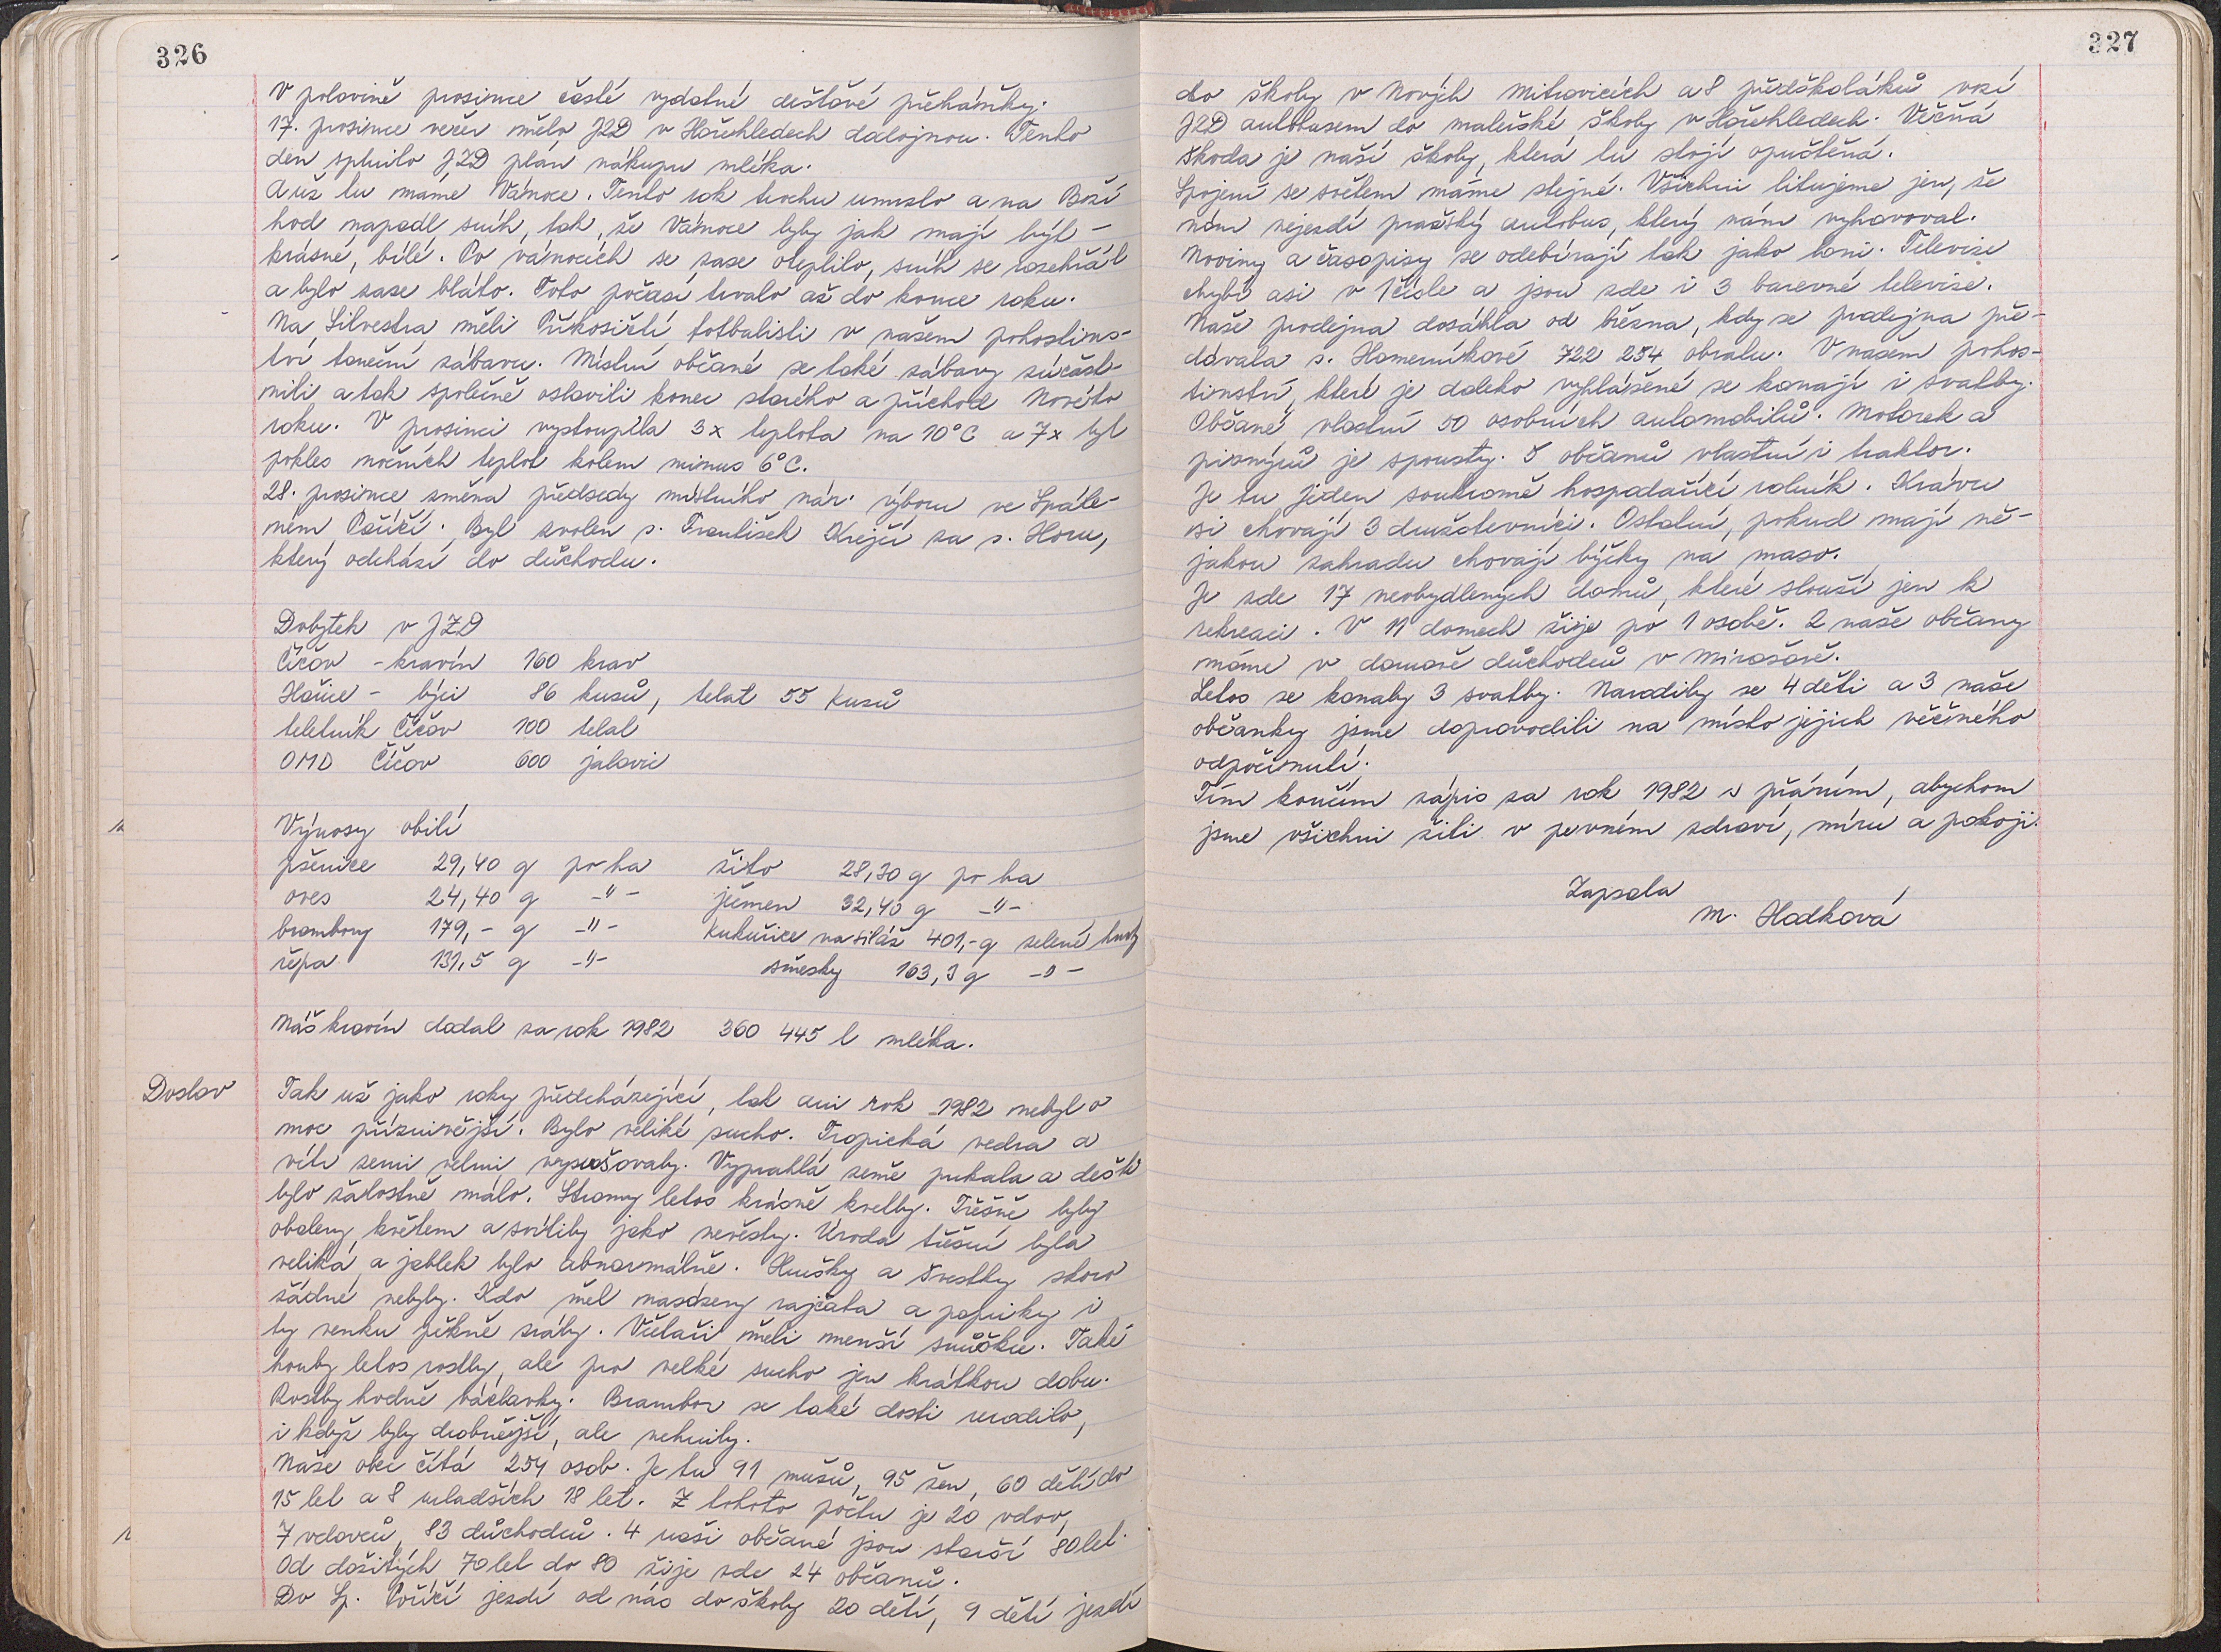 326
V polovině prosince časté vydatné dešťové přeháňky.
17. prosince večer mělo JZD v Hořehledech dodojnou. Tento
den splnilo JZD plán nákupu mléka.
A už tu máme Vánoce. Tento rok trochu umrzlo a na Boží
hod napadl sníh, tak, že Vánoce byly jak mají být -
krásné, bílé. Po vánocích se zase oteplilo, sníh se rozehřál
a bylo zase bláto. Toto počasí trvalo až do konce roku.
Na Silvestra měli Příkosičtí fotbalisti v našem pohostins-
tví taneční zábavu. Místní občané se také zábavy zúčast-
nili a tak společně oslavili konec starého a příchod Nového
roku. V prosinci vystoupila 3x teplota na 10°C a 7x byl
pokles nočních teplot kolem minus 6°C.
28. prosince změna předsedy místního nár. výboru ve Spále-
ném Poříčí. Byl zvolen s. František Krejčí za s. Horu,
který odchází do důchodu.
Dobytek v JZD
Číčov - kravín 160 krav
Hořice - býci 86 kusů, telat 55 kusů
teletník Číčov 100 telat
OMD Číčov 600 jalovic
Výnosy obilí
pšenice 29,40 q po ha žito 28,30 q po ha
oves 24,40 q -"- ječmen 32,40 q -"-
brambory 179,- q -"- kukuřice na siláž 401,- q zelené hmoty
řepa 131,5 q -"- směsky 163,3 q -"-
Náš kravín dodal za rok 1982 360 445 l mléka.
Doslov
Tak už jako roky předcházející, tak ani rok 1982 nebyl o
moc příznivější. Bylo veliké sucho. Tropická vedra a
vítr zemi velmi vysušovaly. Vyprahlá země pukala a dešťů
bylo žalostně málo. Stromy letos krásně kvetly. Třešně byly
obaleny květem a svítily jako nevěsty. Úroda třešní byla
veliká a jablek bylo abnormálně. Hrušky a švestky skoro
žádné nebyly. Kdo měl nasázeny rajčata a papriky i
ty venku pěkně zrály. Včelaři měli menší snůšku. Také
houby letos rostly, ale pro velké sucho jen krátkou dobu.
Rostly hodně václavky. Brambor se také dosti urodilo,
i když byly drobnější, ale nehnily.
Naše obec čítá 254 osob. Je tu 91 mužů, 95 žen, 60 dětí do
15 let a 8 mladších 18 let. Z tohoto počtu je 20 vdov,
7 vdovců, 83 důchodců. 4 naši občané jsou starší 80 let.
Od dožitých 70 let do 80 žije zde 24 občanů.
Do Sp. Poříčí jezdí od nás do školy 20 dětí, 9 dětí jezdí
327
do školy v Nových Mitrovicích a 8 předškoláků vozí
JZD autobusem do mateřské školy v Hořehledech. Věčná
škoda je naší školy, která tu stojí opuštěná.
Spojení se světem máme stejné. Všichni litujeme jen, že
nám nejezdí pražský autobus, který nám vyhovoval.
Noviny a časopisy se odebírají tak jako loni. Televise
chybí asi v 1 čísle a jsou zde i 3 barevné televise.
Naše prodejna dosáhla od března, kdy se prodejna pře-
dávala s. Hamerníkové 722 254 obratu. V našem pohos-
tinství, které je daleko vyhlášené se konají i svatby.
Občané vlastní 50 osobních automobilů. Motorek a
pionýrů je spousty. 5 občanů vlastní i traktor.
Je tu jeden soukromě hospodařící rolník. Krávu
si chovají 3 družstevníci. Ostatní, pokud mají ně-
jakou zahradu chovají býčky na maso.
Je zde 17 neobydlených domů, které slouží jen k
rekreaci. V 11 domech žije po 1 osobě. 2 naše občany
máme v domově důchodců v Mirošově.
Letos se konaly 3 svatby. Narodily se 4 děti a 3 naše
občanky jsme doprovodili na místo jejich věčného
odpočinutí.
Tím končím zápis za rok 1982 s přáním, abychom
jsme všichni žili v pevném zdraví, míru a pokoji.
Zapsala
M. Hodková